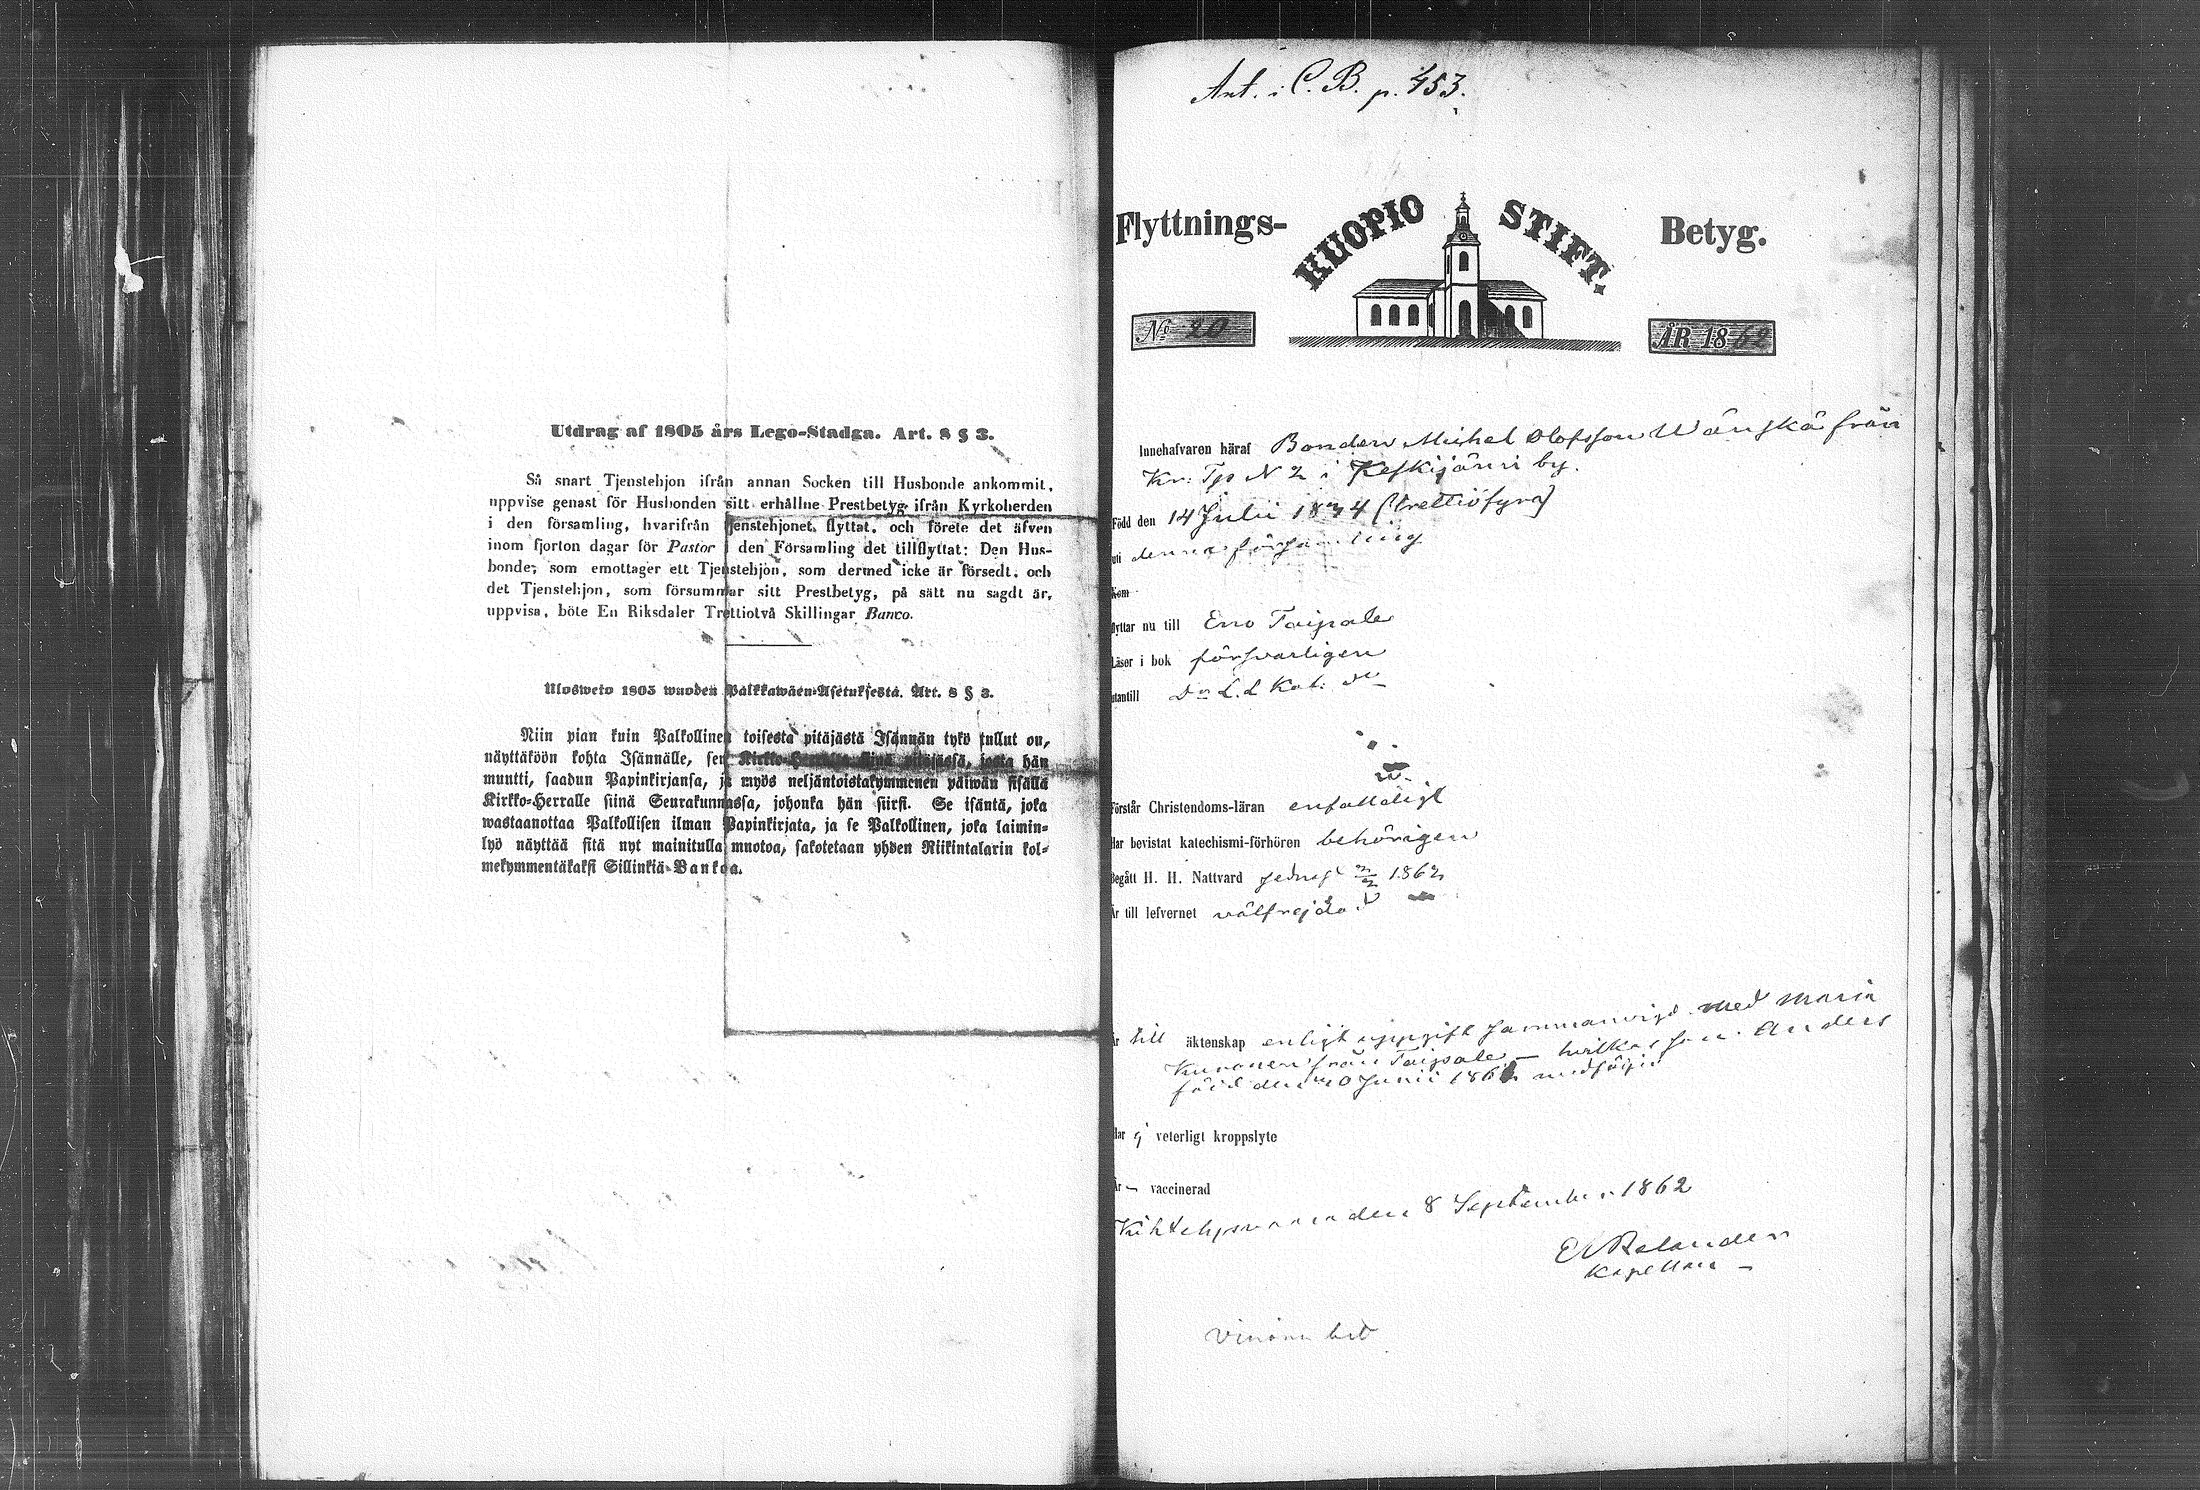 Utdrag af 1805 års Lego-Stadga. Art. 8 § 3.
Så snart Tjenstehjon ifrån annan Socken till Husbonde ankommit,
uppvise genast för Husbonden sitt erhållne Prestbetyg ifrån Kyrkoherden
i den församling, hvarifrån tjenstehjonet flyttat, och förete det äfven
inom fjorton dagar för Pastor i den Församling det tillflyttat: Den Hus-
bonde, som emottager ett Tjenstehjon, som dermed icke är försedt, och
det Tjenstehjon, som försummar sitt Prestbetyg, på sätt nu sagdt är,
uppvisa, böte En Riksdaler Trettiotvå Skillingar Banco.
Ulosweto 1805 wuoden Palkkawäen-Asetuksesta. Art. 8 § 3.
Niin pian kuin Palkollinen toisesta pitäjästä Isännän tykö tullut on,
näyttäköön kohta Isännälle, sen Kirkko-Herralta siinä pitäjässä, josta hän
muutti, saadun Papinkirjansa, ja myös neljäntoistakymmenen päiwän sisällä
Kirkko-Herralle siinä Seurakunnassa, johonka hän siirsi. Se isäntä, joka
wastaanottaa Palkollisen ilman Papinkirjata, ja se Palkollinen, joka laimin-
lyö näyttää sitä nyt mainitulla muotoa, sakotetaan yhden Riikintalarin kol-
mekymmentäkaksi Sillinkiä Bankoa.
Ant. i C. B. p. 453.
Flyttnings- KUOPIO STIFT. Betyg.
No 20 ÅR 1862
Innehafvaren häraf Bonden Michel Olofsson Wänskä från
Kr: Tp N 2 i Keskijärvi by.
Född den 14 Julii 1834 (trettiofyra)
uti denna församling
Kom
flyttar nu till Eno Taipale
Läser i bok försvarligen
utantill
Förstår Christendoms-läran enfaldeligt
Har bevistat katechismi-förhören behörigen
Begått H. H. Nattvard sednast 1862
Är till lefvernet välfrejdad
Är till äktenskap enligt uppgift sammanvigd med Maria
Kuronen från Taipale – hvilkas son Anders
född den 20 Junii 186 medföljer
Har ej veterligt kroppslyte
Är – vaccinerad
Kihtelysvaara den 8 September 1862
Kapellan –